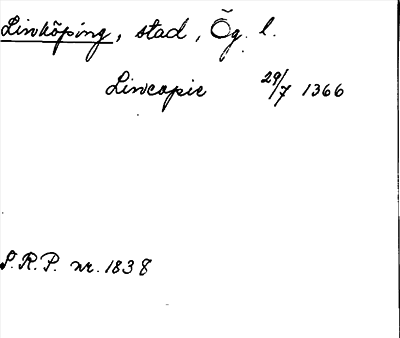 Linköping, stad, Ög. l.
Lincopie 29/7 1366
S.R.P. nr. 1838